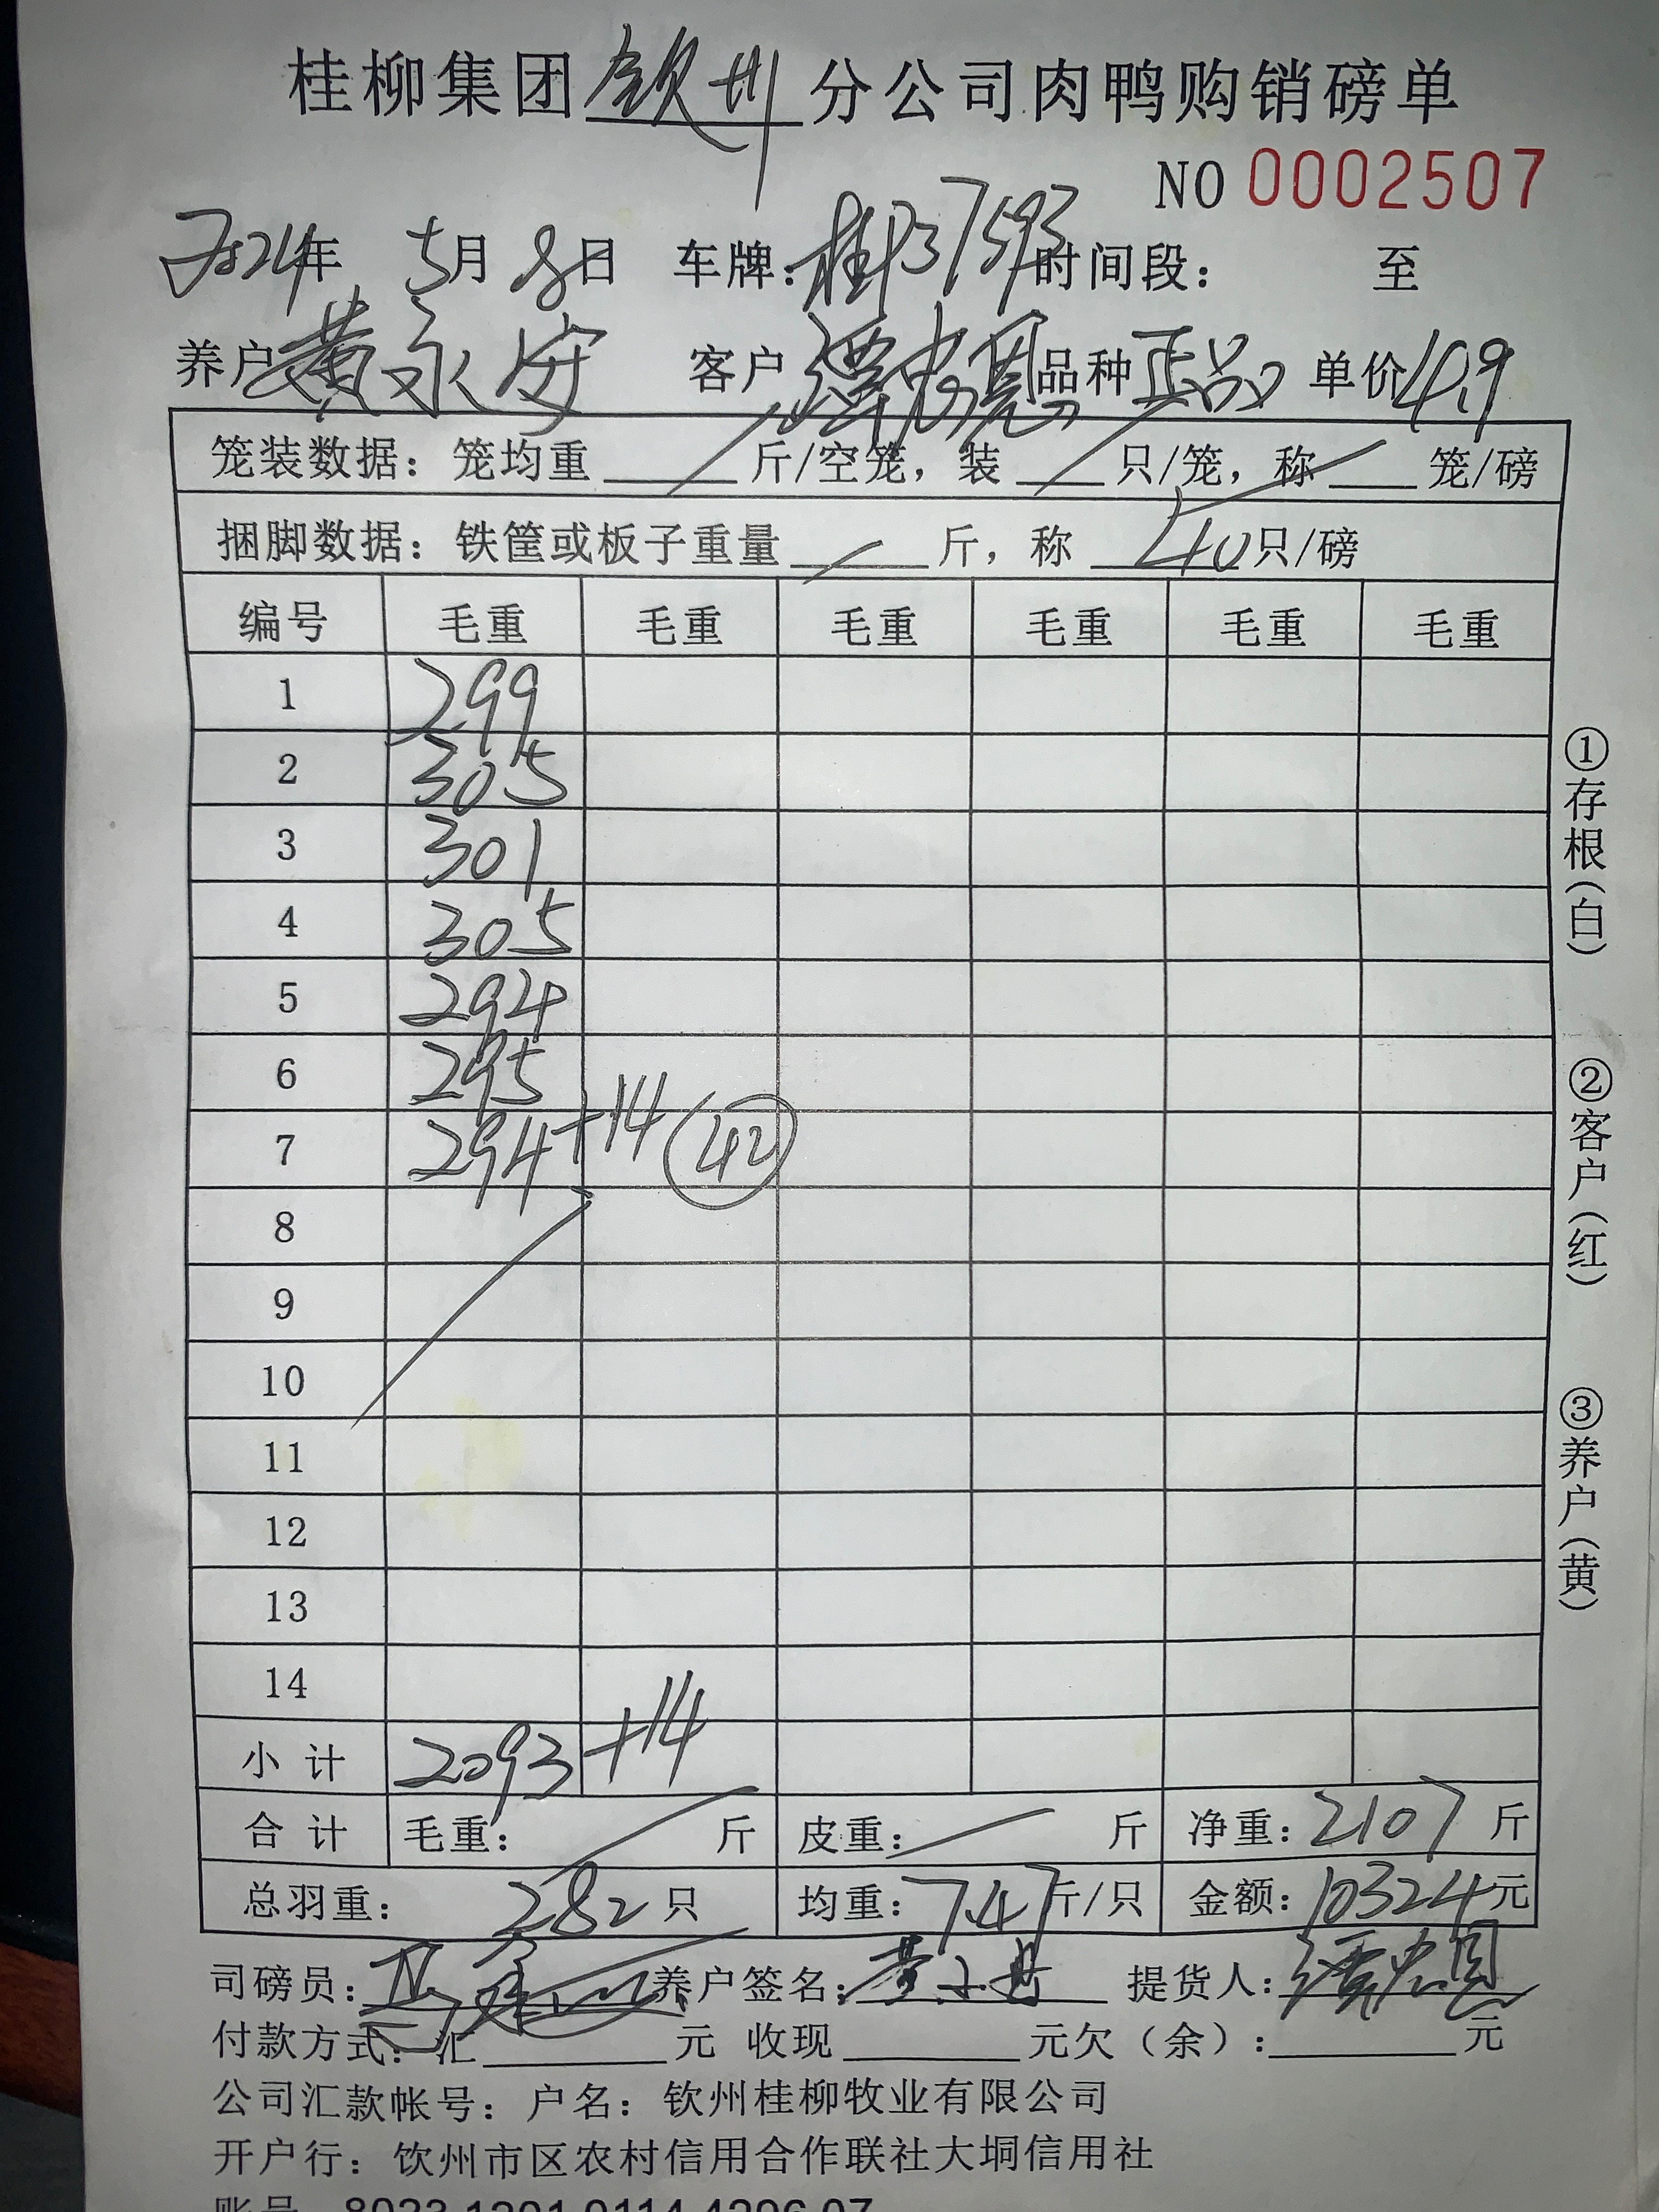 桂柳集团钦州分公司肉鸭购销磅单
NO 0002507
2024年 5月 8日 车牌：桂P37593 时间段： 至
养户 黄永安 客户 谭忠恩 品种 正品 单价 4.9
笼装数据：笼均重 / 斤/空笼，装 / 只/笼，称 / 笼/磅
捆脚数据：铁筐或板子重量 / 斤，称 40 只/磅
编号 毛重 毛重 毛重 毛重 毛重 毛重
1 299
2 305
3 301
4 305
5 294
6 295
7 294+14 (42)
8
9
10
11
12
13
14
小计 2093+14
合计 毛重： / 斤 皮重： / 斤 净重：2107 斤
总羽重： 282 只 均重：7.47 斤/只 金额：10324元
①存根（白）
②客户（红）
③养户（黄）
司磅员： 养户签名： 提货人：谭忠恩
付款方式：汇 元 收现 元欠（余）： 元
公司汇款帐号：户名：钦州桂柳牧业有限公司
开户行：钦州市区农村信用合作联社大垌信用社
账号 8023 1201 0114 4296 07